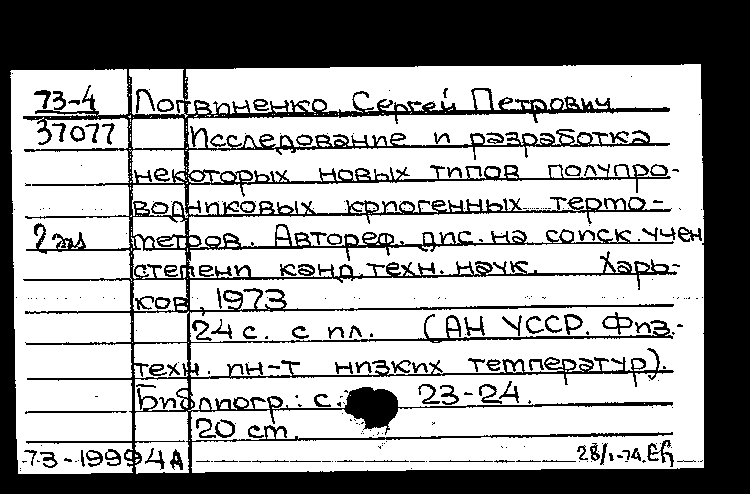 73-4 Логвиненко, Сергей Петрович
37077 Исследование и разработка
некоторых новых типов полупро-
водниковых криогенных термо-
2 экз метров. Автореф. дис. на соиск. учен
степени канд. техн. наук. Харь-
ков, 1973
24 с. с ил. (АН УССР. Физ.-
техн. ин-т низких температур).
Библиогр.: с. 23-24.
20 см.
73-19994А 28/I-74.